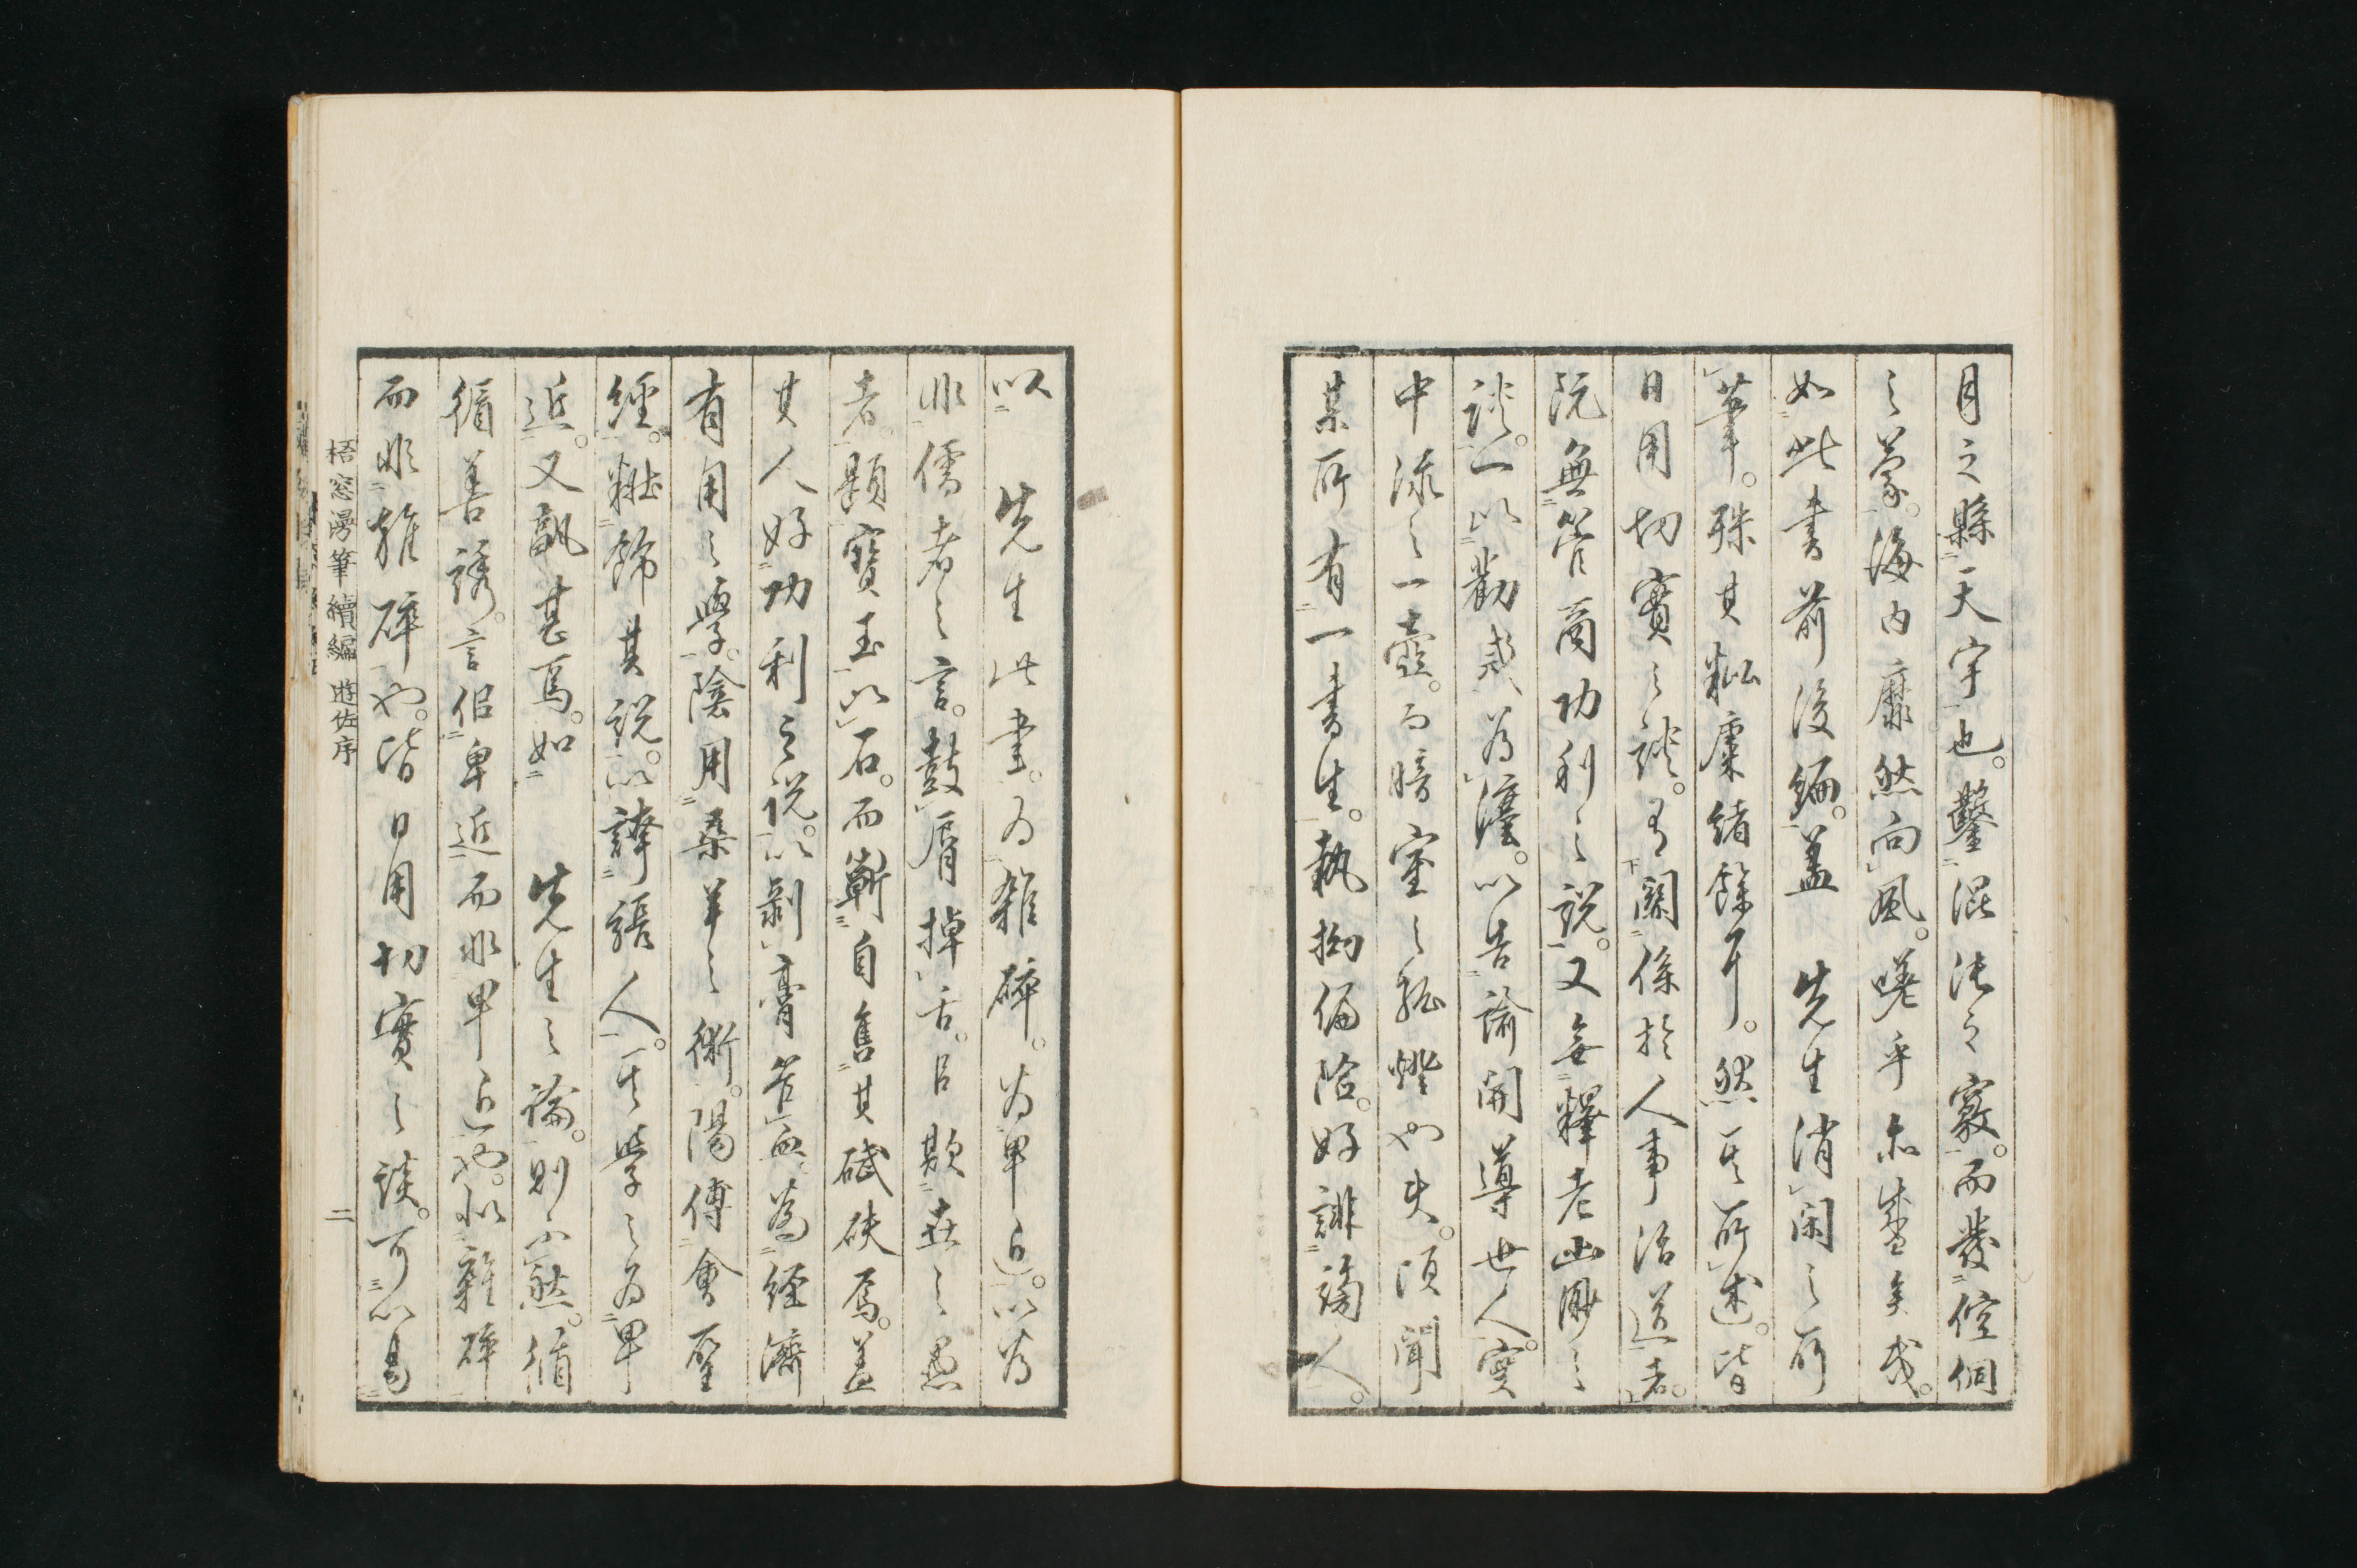 月之縣天宇也。鑿混沌之竅。而發倥侗
之蒙。海内靡然向風。嗟乎亦盛矣哉。
如此書前後編。蓋　先生消閑之所
筆。殊其粃糠緒餘耳。然其所述。皆
日用切實之談。有關係於人事治道者。
既無管商功利之説。又無釋老幽眇之
談。一以勸戒爲讜。以告諭開導世人。實
中流之一壺。而暗室之孤燈也夫。頃聞
某所有一書生。執拗偏陰。好誹謗人。
以　先生此書。爲雜碎。爲卑近。以爲
非儒者之言。鼓脣掉舌。以欺世之愚
者。題寶玉以石。而衒自售其碔砆焉。蓋
其人好功利之説。以剥膏管血。爲經濟
有用之學。陰用桑羊之術。陽傅會聖
經。粧飾其説。以譸張人。其學之爲卑
近。又孰甚焉。如　先生之論。則不然。循
循善誘。言似卑近而非卑近也。似雜碎
而非雜碎也。皆日用切實之談。可以易
梧窓漫筆續編　遊佐序　二